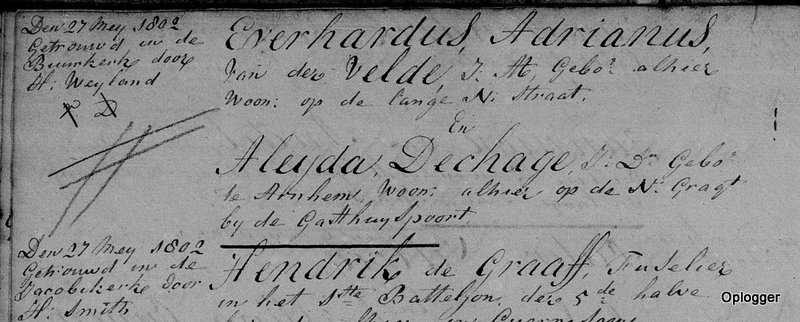 Den 27 Mey 1802
Getrouwd in de
Buurkerk door
H: Weyland
Everhardus, Adrianus,
Van der Velde, J: M, Gebor alhier
Woon: op de lange N: Straat.
En
Aleyda, Dechage, J: Dr Gebor
te Arnhem, Woon: alhier op de N: Gragt
by de Gasthuys poort.
Den 27 Mey 1802
Getrouwd in de
Jacobikerk door
H: Smith
Hendrik de Graaff, Fuselier
in het 1ste Batteljon, der 5de halve
Oplogger